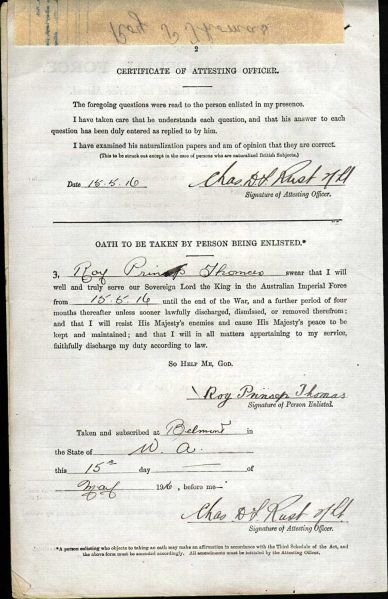 Roy P Thomas
2
CERTIFICATE OF ATTESTING OFFICER.
The foregoing questions were read to the person enlisted in my presence.
I have taken care that he understands each question, and that his answer to each
question has been duly entered as replied to by him.
I have examined his naturalization papers and am of opinion that they are correct.
(This to be struck out except in the case of persons who are naturalized British Subjects.)
Date 15.5.16 Chas D L Rust
Signature of Attesting Officer.
OATH TO BE TAKEN BY PERSON BEING ENLISTED.*
I, Roy Prinsep Thomas swear that I will
well and truly serve our Sovereign Lord the King in the Australian Imperial Force
from 15.5.16 until the end of the War, and a further period of four
months thereafter unless sooner lawfully discharged, dismissed, or removed therefrom;
and that I will resist His Majesty's enemies and cause His Majesty's peace to be
kept and maintained; and that I will in all matters appertaining to my service,
faithfully discharge my duty according to law.
SO HELP ME, GOD.
Roy Prinsep Thomas
Signature of Person Enlisted.
Taken and subscribed at Belmont in
the State of W. A.
this 15th day of
May 1916, before me—
Chas D L Rust
Signature of Attesting Officer.
*A person enlisting who objects to taking an oath may make an affirmation in accordance with the Third Schedule of the Act, and
the above form must be amended accordingly. All amendments must be initialed by the Attesting Officer.